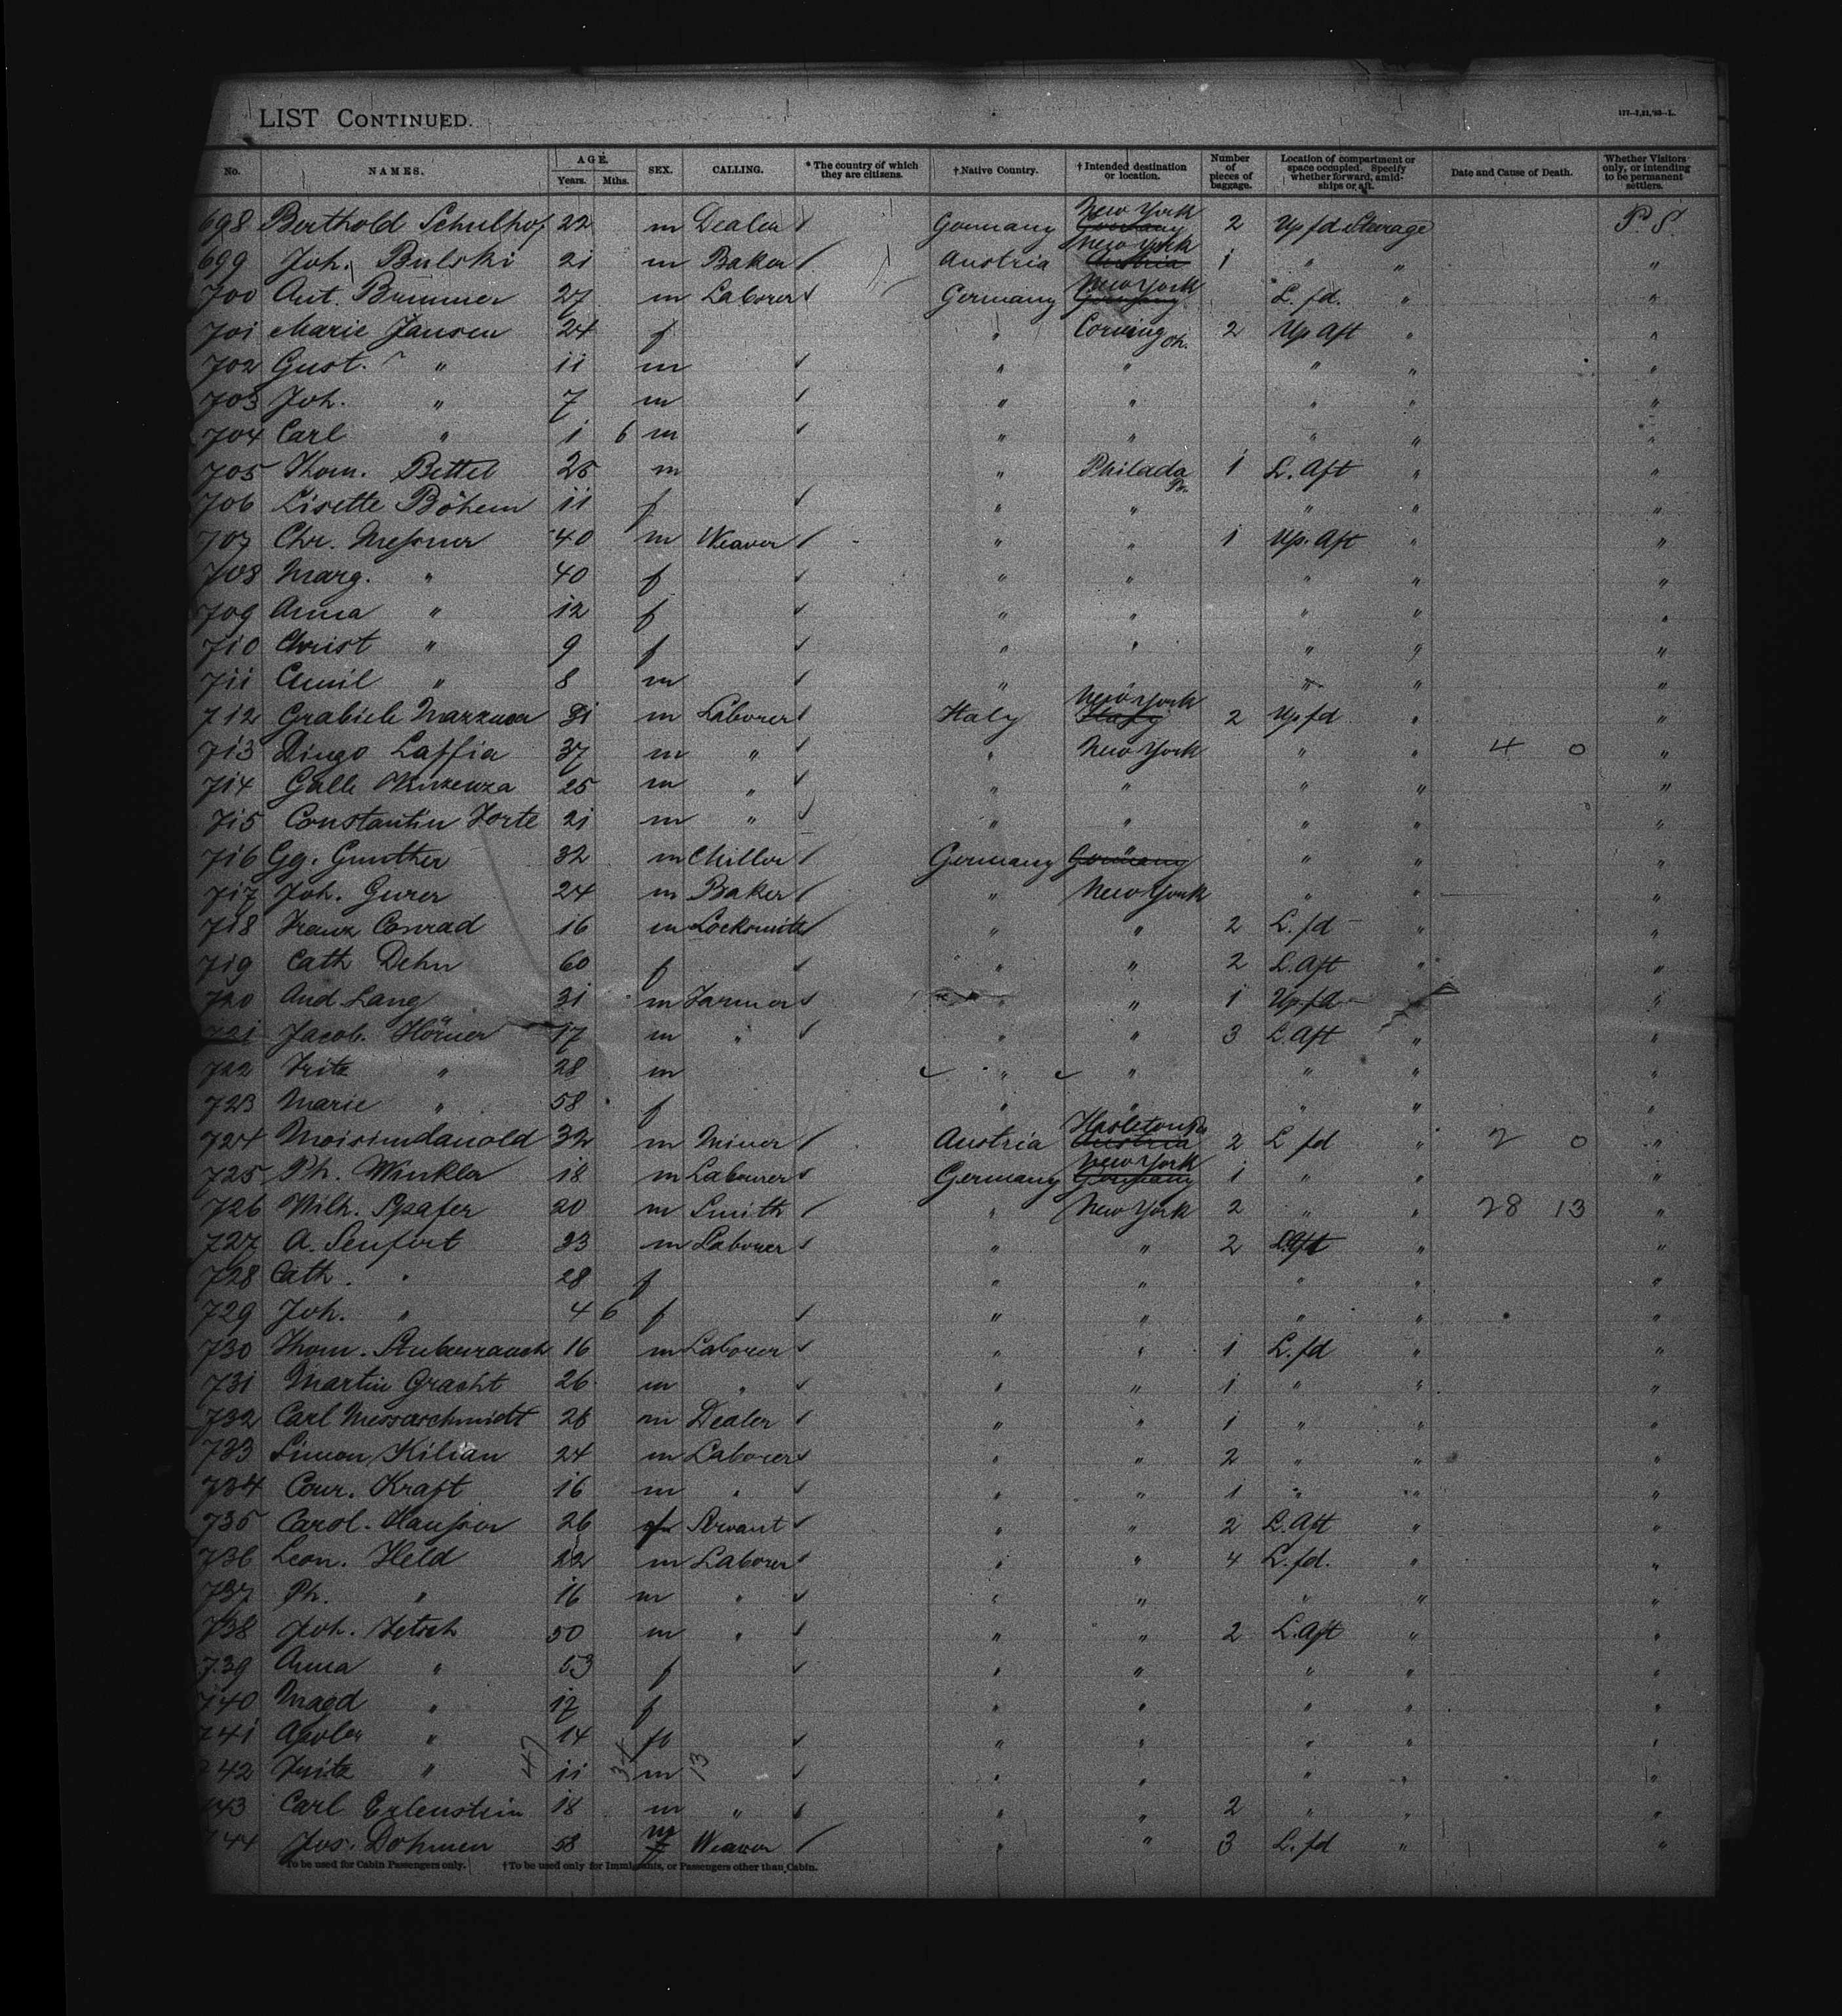 LIST CONTINUED.
No. NAMES. AGE. Years. Mths. SEX. CALLING. * The country of which they are citizens. † Native Country. † Intended destination or location. Number of pieces of baggage. Location of compartment or space occupied. Specify whether forward, amidships or aft. Date and Cause of Death. Whether Visitors only, or intending to be permanent settlers.
698 Berthold Schulhof 22 m Dealer Germany Germany New York 2 Up fd Steerage P. S.
699 Joh. Bulski 21 m Baker Austria Austria New York 1 " " "
700 Ant. Brunner 27 m Laborer Germany Germany New York L. fd. " "
701 Marie Jansen 24 f " Corning Oh. 2 Up Aft " "
702 Gust. " 11 m " " " " "
703 Joh. " 7 m " " " " "
704 Carl " 1 6 m " " " " "
705 Thom. Bettel 25 m " Philada Pa. 1 L. Aft " "
706 Lisette Böhem 11 f " " " " "
707 Chr. Messner 40 m Weaver " " 1 Up. Aft " "
708 Marg. " 40 f " " " " "
709 Anna " 12 f " " " " "
710 Christ " 9 f " " " " "
711 Emil " 8 m " " " " "
712 Grabiele 31 m Laborer Italy Italy New York 2 Up fd " "
713 Dingo Laffia 37 m " " New York " " 4 0 "
714 Galle 25 m " " " " " "
715 Constantin Forte 21 m " " " " " "
716 Gg. Gunther 32 m Miller Germany Germany " " "
717 Joh. Gurer 24 m Baker " New York " " "
718 Franz Conrad 16 m Locksmith " " 2 L. fd " "
719 Cath Dehn 60 f " " 2 L. Aft " "
720 And. Lang 31 m Farmer " " 1 Up fd "
721 Jacob. Hörner 17 m " " " 3 L. Aft " "
722 Fritz " 28 m " " " " "
723 Marie " 58 f " " " " "
724 Moisimdanold 32 m Miner Austria Austria Hasleton Pa 2 L fd " 2 0 "
725 Ph. Winkler 18 m Labourer Germany Germany New York 1 " " "
726 Wilh. Spafer 20 m Smith " New York 2 " " 28 13 "
727 A. Senfert 33 m Laborer " " 2 L. Aft " "
728 Cath. " 28 f " " " " "
729 Joh. " 4 6 f " " " " "
730 Thom. Stubenrauch 16 m Laborer " " 1 L. fd " "
731 Martin Gracht 26 m " " " 1 " " "
732 Carl Messerschmidt 26 m Dealer " " 1 " " "
733 Simon Kilian 24 m Laborer " " 2 " " "
734 Conr. Kraft 16 m " " " 1 " " "
735 Carol. Hausser 26 f Servant " " 2 L. Aft " "
736 Leon. Held 22 m Laborer " " 4 L. fd. " "
737 Ph. " 16 m " " " " " "
738 Joh. Fetsch 50 m " " " 2 L. Aft " "
739 Anna " 53 f " " " " "
740 Magd " 17 f " " " " "
741 " 14 f " " " " "
742 Fritz " 11 m " " " " "
743 Carl Erlenstein 18 m " " " 2 " " "
744 Jos. Dohmen 58 m Weaver " " 3 L. fd " "
47 34 13
*To be used for Cabin Passengers only. †To be used only for Immigrants, or Passengers other than Cabin.